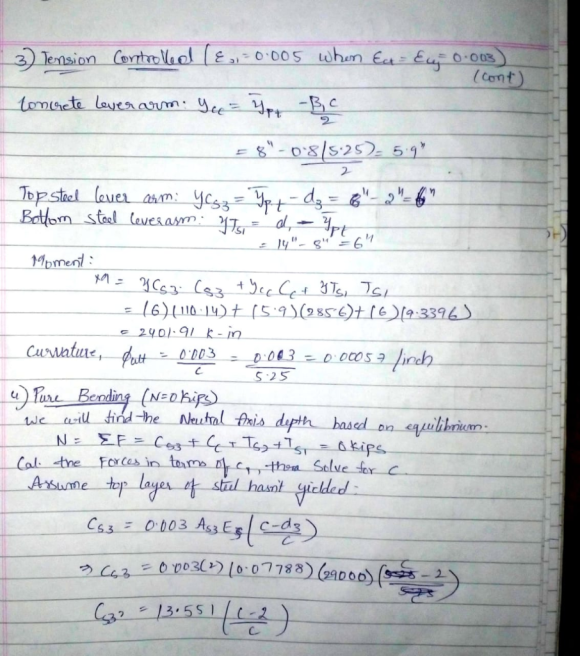 3) Tension Controlled (ε21 = 0.005 when εc1 = εcy = 0.003)
(cont)
Concrete lever arm: ycc = ȳpt - β1c/2
= 8" - 0.8(5.25)/2 = 5.9"
Top steel lever arm: ycs3 = ȳpt - d3 = 8" - 2" = 6"
Bottom steel lever arm: yTs1 = d1 - ȳpt
= 14" - 8" = 6"
Moment:
M = ycs3 . Cs3 + ycc Cc + yTs1 Ts1
= (6)(110.14) + (5.9)(285.6) + (6)(9.3396)
= 2401.91 k-in
Curvature, ϕult = 0.003/c = 0.003/5.25 = 0.00057 /inch
4) Pure Bending (N=0 kips)
We will find the Neutral Axis depth based on equilibrium.
N = ΣF = Cs3 + Cc + Ts2 + Ts1 = 0 kips
Cal. the Forces in terms of c, then Solve for c.
Assume top layer of steel hasn't yielded:
Cs3 = 0.003 As3 Es (c-d3/c)
⇒ Cs3 = 0.003(2)(0.07788)(29000)(c-2/c)
Cs3 = 13.551 (c-2/c)